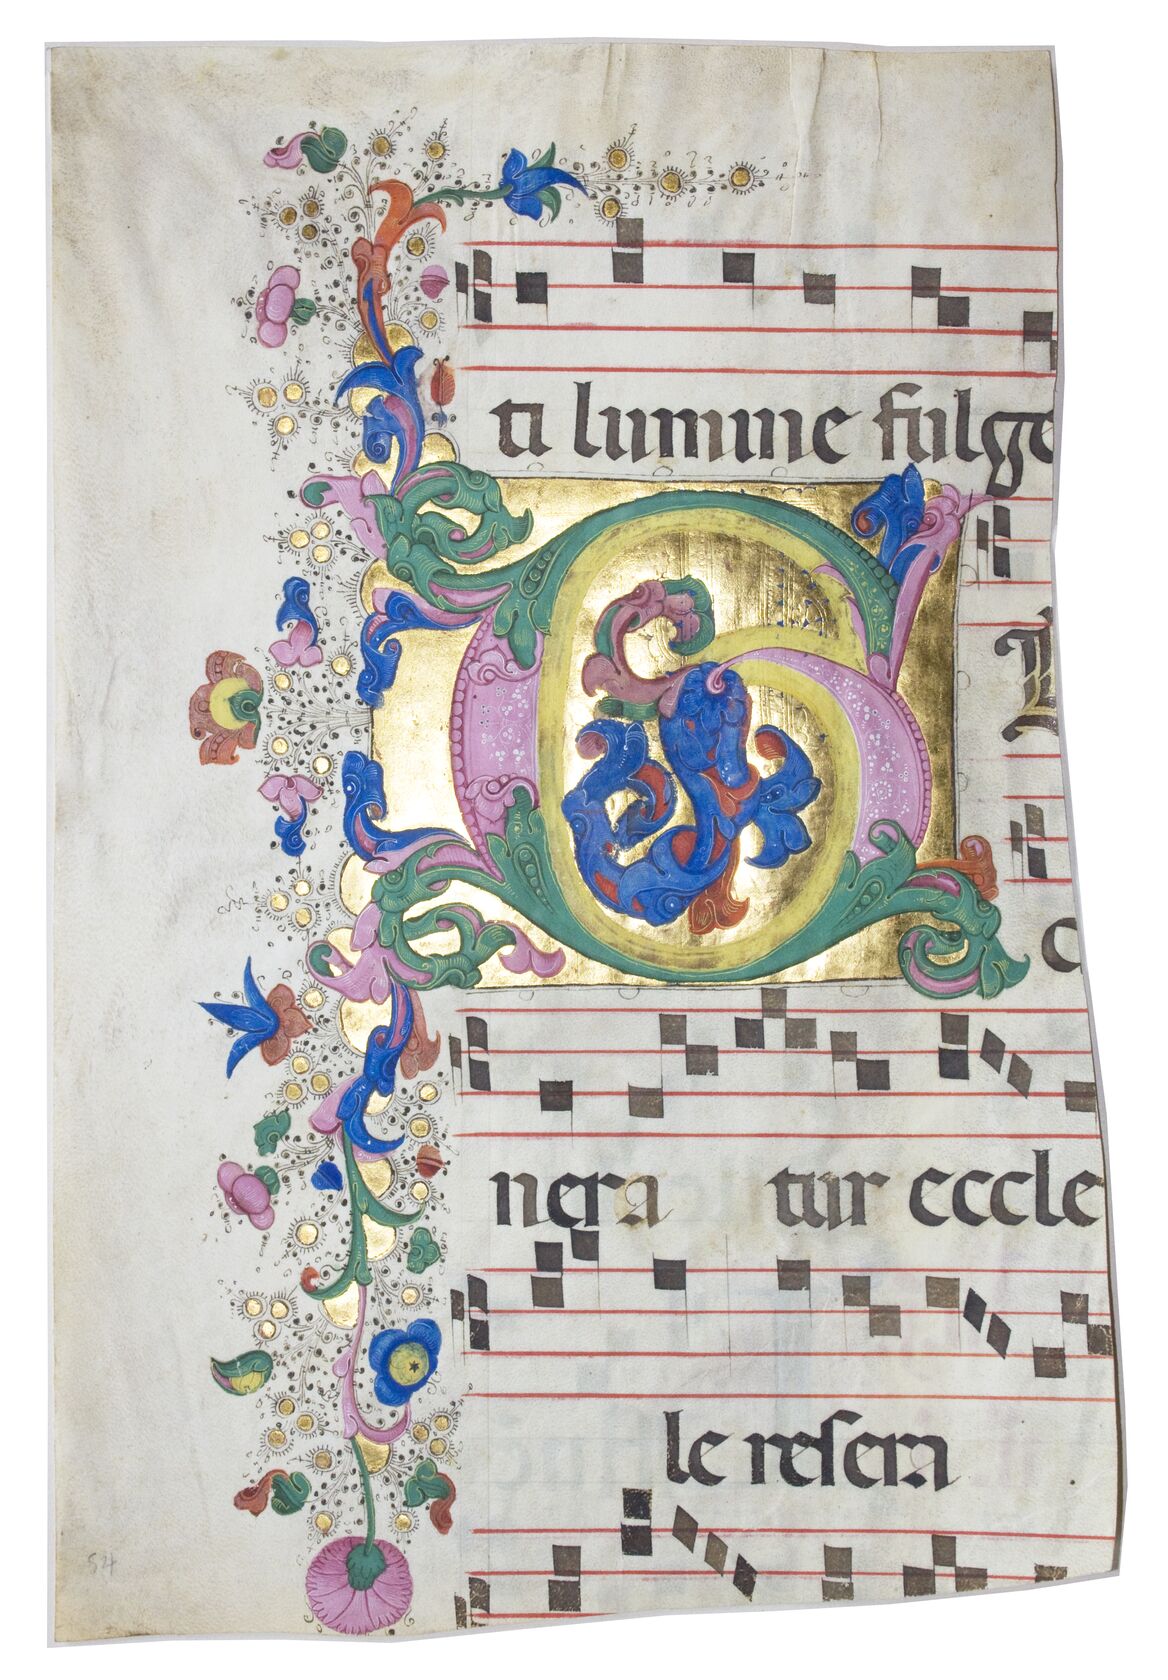 ti lumine fulge
G
nera tur eccle
le resera
54